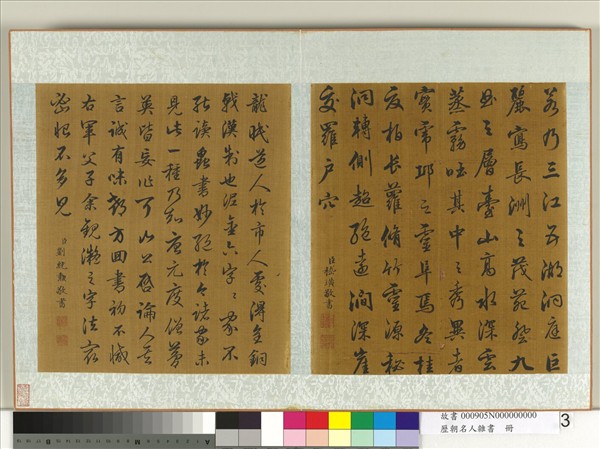 若乃三江五湖洞庭巨
麗寫長洲之茂苑登九
曲之層臺山高水深雲
蒸霧吐其中之秀異者
實常邱之靈阜焉冬桂
夏柏長蘿脩竹靈源秘
洞轉側超絕遠澗深崖
交羅戶穴
臣嵇璜敬書
龍眠道人於市人處得金銅
戟漢制也泥金六字字家不
能讀蟲書妙絕於今諸家未
見此一種乃知唐元度僧夢
英皆妄作耳 論人書
言誠有味 方回書初不減
右軍父子余觀 之字法最
密恨不多見
臣劉 敬書
故書 000905N000000000
歷朝名人雜書 冊
3